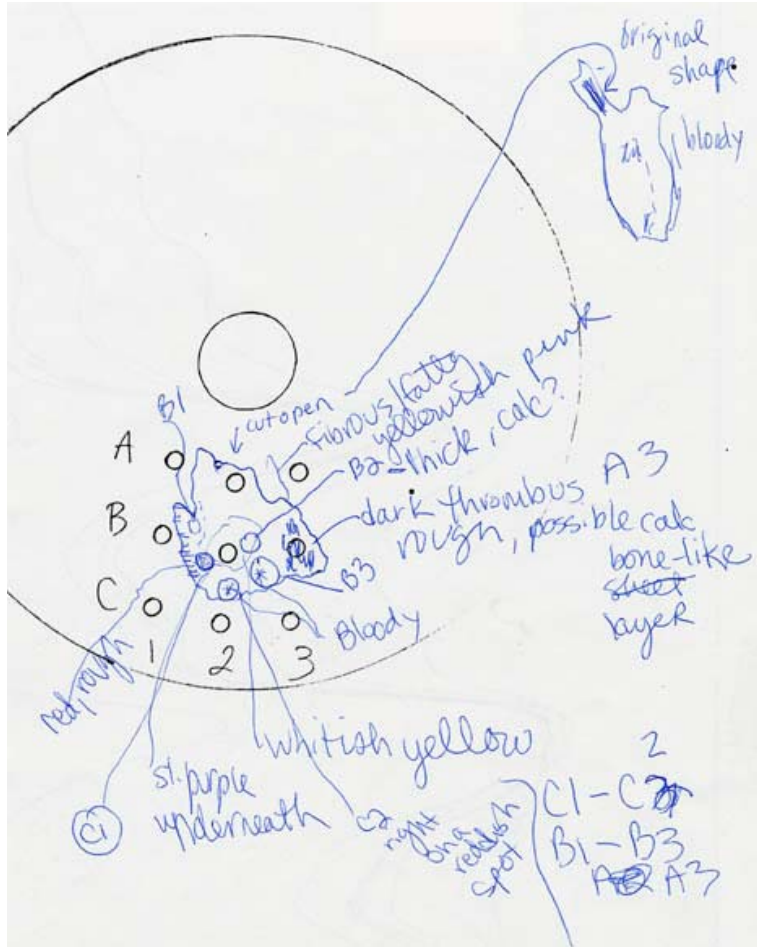 original
shape
bloody
B1
cut open
fibrous/fatty
yellowish pink
B2-thick, calc?
A
dark thrombus A3
rough, possible calc
bone-like
sheet
layer
B
B3
C
Bloody
1
2
3
red, rough
whitish yellow
sl. purple
underneath
C1
C2
right
on a
reddish
spot
2
C1-C
B1-B3
A3